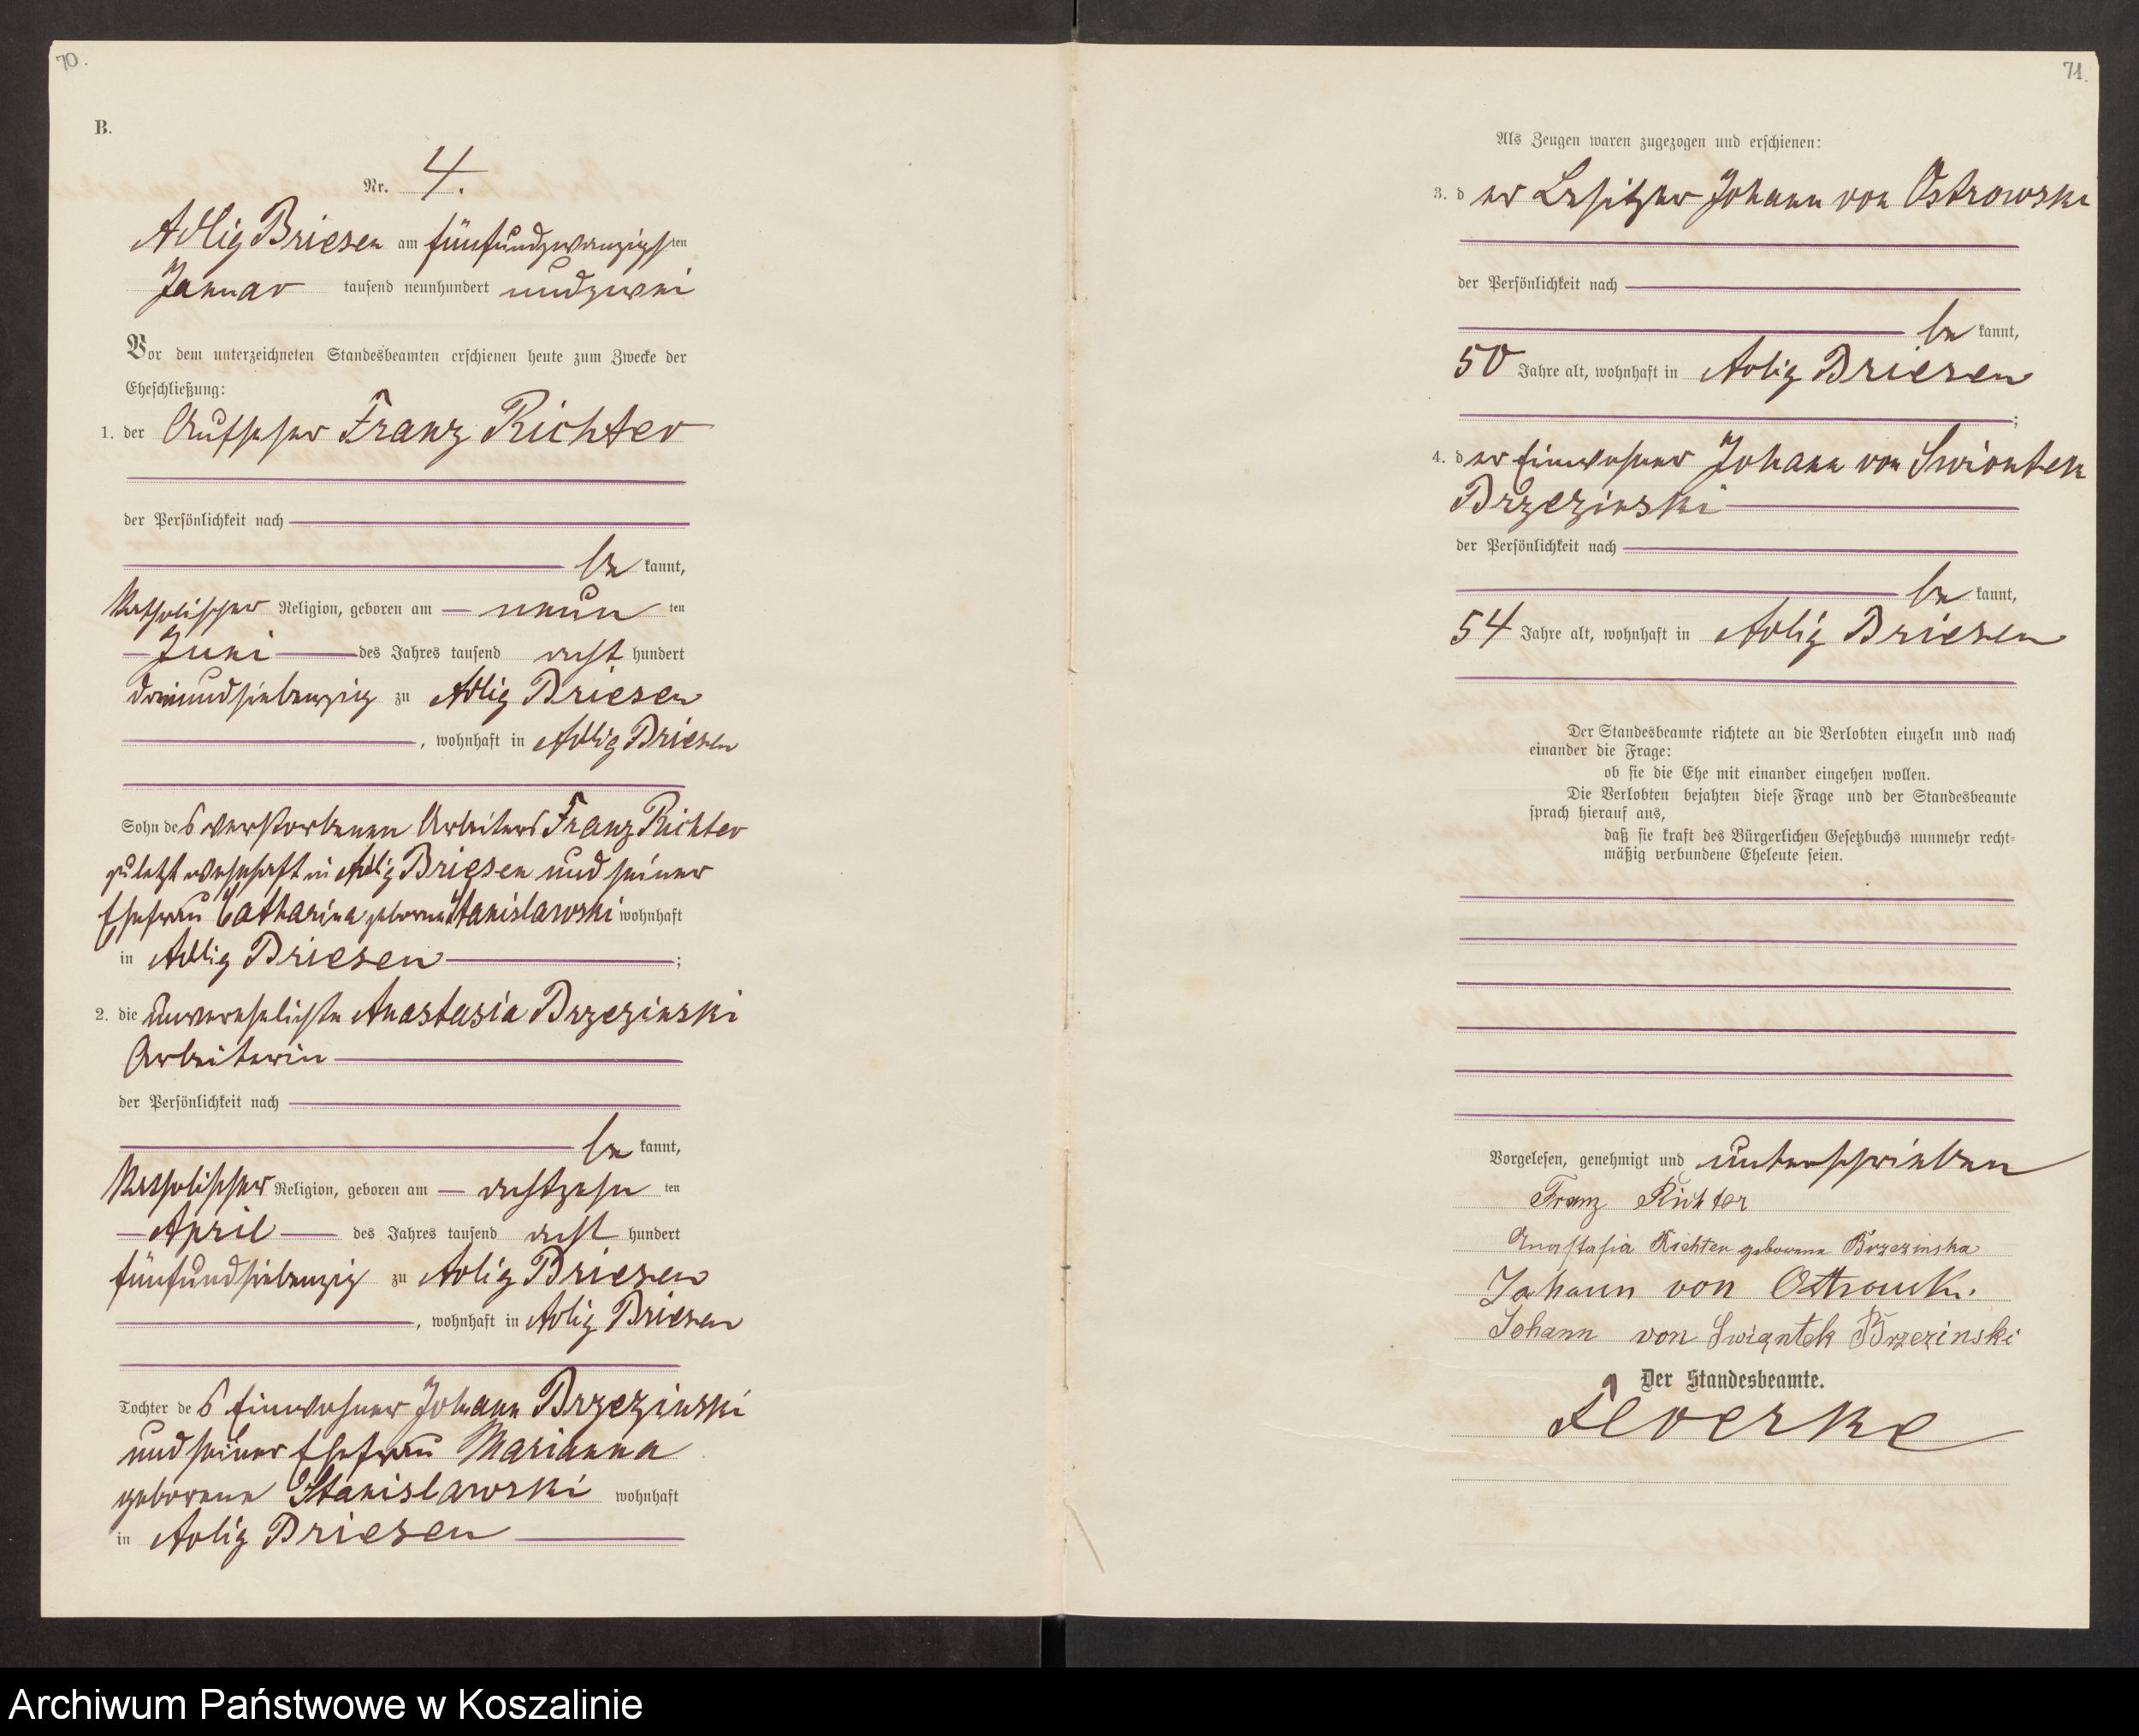 70.
B.
Nr. 4.
Adlig Briesen am fünfundzwanzigsten
Januar tausend neunhundert undzwei
Vor dem unterzeichneten Standesbeamten erschienen heute zum Zwecke der
Eheschließung:
1. der Aufseher Franz Richter
der Persönlichkeit nach
be kannt,
katholischer Religion, geboren am neun ten
Juni des Jahres tausend acht hundert
dreiundsiebenzig zu Adlig Briesen
, wohnhaft in Adlig Briesen
Sohn des verstorbenen Arbeiters Franz Richter
zuletzt wohnhaft in Adlig Briesen und seiner
Ehefrau Catharina geborene Stanislawski wohnhaft
in Adlig Briesen ;
2. die unverehelichte Anastasia Brzezinski
Arbeiterin
der Persönlichkeit nach
be kannt,
katholischer Religion, geboren am achtzehn ten
April des Jahres tausend acht hundert
fünfundsiebenzig zu Adlig Briesen
, wohnhaft in Adlig Briesen
Tochter des Einwohner Johann Brzezinski
und seiner Ehefrau Marianna
geborene Stanislawski wohnhaft
in Adlig Briesen
71.
Als Zeugen waren zugezogen und erschienen:
3. der Besitzer Johann von Ostrowski
der Persönlichkeit nach
be kannt,
50 Jahre alt, wohnhaft in Adlig Briesen
;
4. der Einwohner Johann von Swiontek
Brzezinski
der Persönlichkeit nach
be kannt,
54 Jahre alt, wohnhaft in Adlig Briesen
Der Standesbeamte richtete an die Verlobten einzeln und nach
einander die Frage:
ob sie die Ehe mit einander eingehen wollen.
Die Verlobten bejahten diese Frage und der Standesbeamte
sprach hierauf aus,
daß sie kraft des Bürgerlichen Gesetzbuchs nunmehr recht-
mäßig verbundene Eheleute seien.
Vorgelesen, genehmigt und unterschrieben
Franz Richter
Anastasia Richter geborene Brzezinska
Johann von
Johann von Swiqntek Brzezinski
Der Standesbeamte.
Archiwum Państwowe w Koszalinie